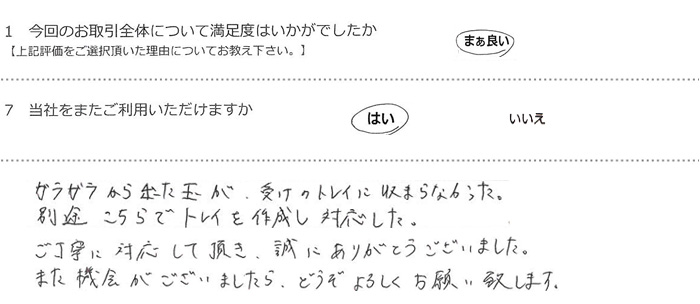 1 今回のお取引全体について満足度はいかがでしたか
まぁ良い
【上記評価をご選択頂いた理由についてお教え下さい。】
7 当社をまたご利用いただけますか
はい いいえ
ガラガラから出た玉が、受けのトレイに収まらなかった。
別途こちらでトレイを作成し対応した。
ご丁寧に対応して頂き、誠にありがとうございました。
また機会がございましたら、どうぞよろしくお願い致します。